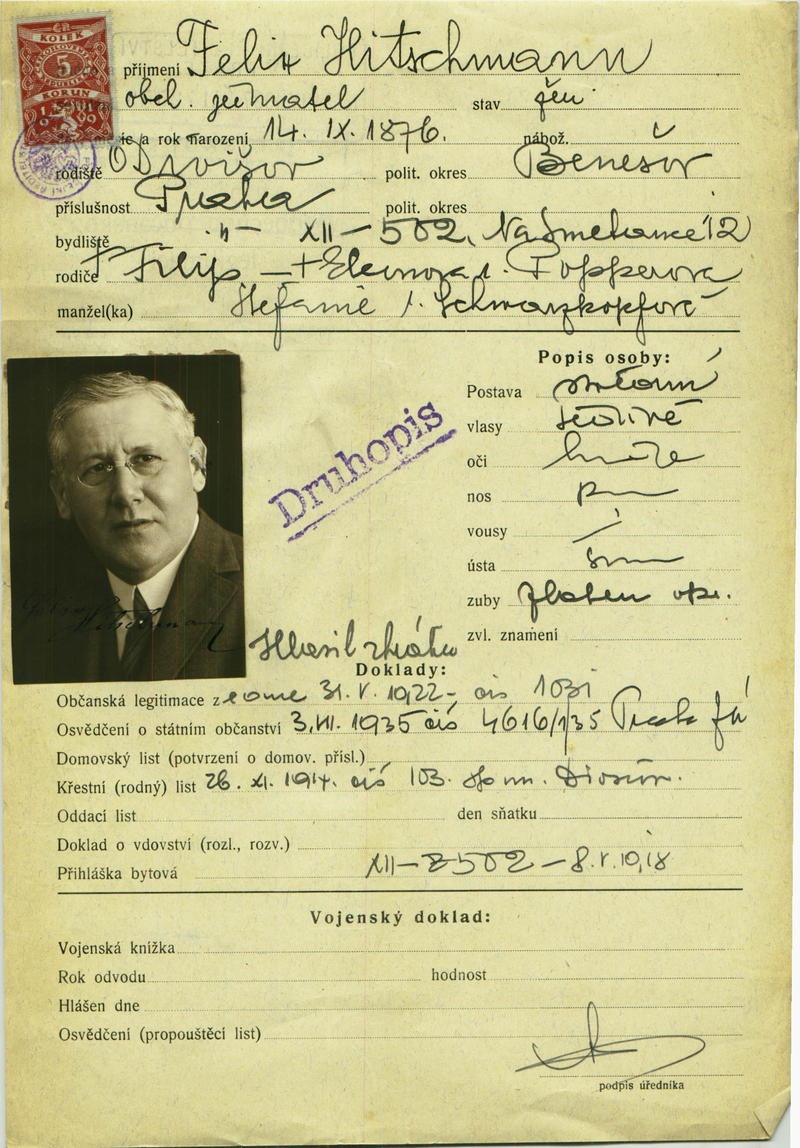 KOLEK
5
KORUN
příjmení Felix Hitschmann
obch. jednatel stav žen.
a rok narození 14. IX. 1876. nábož.
rodiště Divišov polit. okres Benešov
příslušnost Praha polit. okres
bydliště -"- XII - 502, Na Smetance 12
rodiče + Filip - + Eleonora r. Popperova
manžel(ka) Stefanie r. Schwarzkopfová
Popis osoby:
Postava
vlasy šedivé
oči
nos
vousy
ústa
zuby
zvl. znamení
Druhopis
Hlásil ztrátu
Doklady:
Občanská legitimace z 31. V. 1922 - čís 1031
Osvědčení o státním občanství 3. VII. 1935 čís 4616/1/35 Praha
Domovský list (potvrzení o domov. přísl.)
Křestní (rodný) list 26. XI. 1914. čís 103. Divišov.
Oddací list den sňatku
Doklad o vdovství (rozl., rozv.)
Přihláška bytová XII - 502 - 8. V. 1918
Vojenský doklad:
Vojenská knížka
Rok odvodu hodnost
Hlášen dne
Osvědčení (propouštěcí list)
podpis úředníka